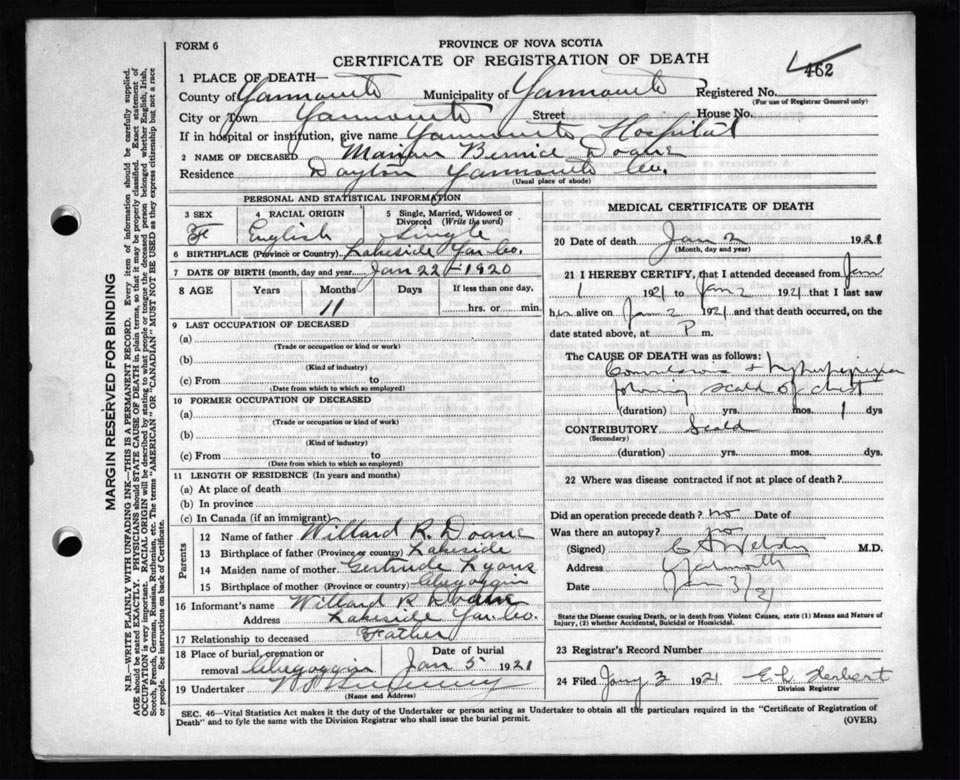 FORM 6
PROVINCE OF NOVA SCOTIA
CERTIFICATE OF REGISTRATION OF DEATH
462
1 PLACE OF DEATH—
County of Yarmouth Municipality of Yarmouth Registered No.
(For use of Registrar General only)
City or Town Yarmouth Street House No.
If in hospital or institution, give name Yarmouth Hospital
2 NAME OF DECEASED Bernice Doane
Residence Dayton Yarmouth Co.
(Usual place of abode)
PERSONAL AND STATISTICAL INFORMATION
3 SEX 4 RACIAL ORIGIN 5 Single, Married, Widowed or Divorced (Write the word)
F English Single
6 BIRTHPLACE (Province or Country) Lakeside Yar. Co.
7 DATE OF BIRTH (month, day and year) Jan 22-1920
8 AGE Years Months Days If less than one day,
11 hrs. or min.
9 LAST OCCUPATION OF DECEASED
(a)
(Trade or occupation or kind or work)
(b)
(Kind of industry)
(c) From to
(Date from which to which so employed)
10 FORMER OCCUPATION OF DECEASED
(a)
(Trade or occupation or kind of work)
(b)
(Kind of industry)
(c) From to
(Date from which to which so employed)
11 LENGTH OF RESIDENCE (In years and months)
(a) At place of death
(b) In province
(c) In Canada (if an immigrant)
Parents
12 Name of father Willard R. Doane
13 Birthplace of father (Province or country) Lakeside
14 Maiden name of mother Gertrude Lyons
15 Birthplace of mother (Province or country) Chegoggin
16 Informant's name Willard R Doane
Address Lakeside Yar. Co.
17 Relationship to deceased Father
18 Place of burial, cremation or removal Chegoggin Date of burial Jan 5 1921
19 Undertaker
(Name and Address)
MEDICAL CERTIFICATE OF DEATH
20 Date of death Jan 2 1921
(Month, day and year)
21 I HEREBY CERTIFY, that I attended deceased from Jan
1 1921 to Jan 2 1921 that I last saw
h alive on Jan 2 1921 and that death occurred, on
date stated above, at P m.
The CAUSE OF DEATH was as follows:
Convulsions + hyperpyrexia
following scald of chest
(duration) yrs. mos. 1 dys
CONTRIBUTORY Scald
(Secondary)
(duration) yrs. mos. dys.
22 Where was disease contracted if not at place of death?
Did an operation precede death? no Date of
Was there an autopsy? no
(Signed) M.D.
Address Yarmouth
Date Jan 3/21
State the Disease causing Death, or in death from Violent Causes, state (1) Means and Nature of
Injury, (2) whether Accidental, Suicidal or Homicidal.
23 Registrar's Record Number
24 Filed Jany 3 1921 E. L. Herbert
Division Registrar
SEC. 46—Vital Statistics Act makes it the duty of the Undertaker or person acting as Undertaker to obtain all the particulars required in the "Certificate of Registration of
Death" and to fyle the same with the Division Registrar who shall issue the burial permit. (OVER)
MARGIN RESERVED FOR BINDING
N.B.—WRITE PLAINLY WITH UNFADING INK—THIS IS A PERMANENT RECORD. Every item of information should be carefully supplied.
AGE should be stated EXACTLY. PHYSICIANS should STATE CAUSE OF DEATH in plain terms, so that it may be properly classified. Exact statement of
OCCUPATION is very important. RACIAL ORIGIN will be described by stating to what people or tongue the deceased person belonged whether English, Irish,
Scotch, French, German, Russian, Ruthenian, etc. The terms "AMERICAN" OR "CANADIAN" MUST NOT BE USED as they express citizenship but not a race
or people. See instructions on back of Certificate.